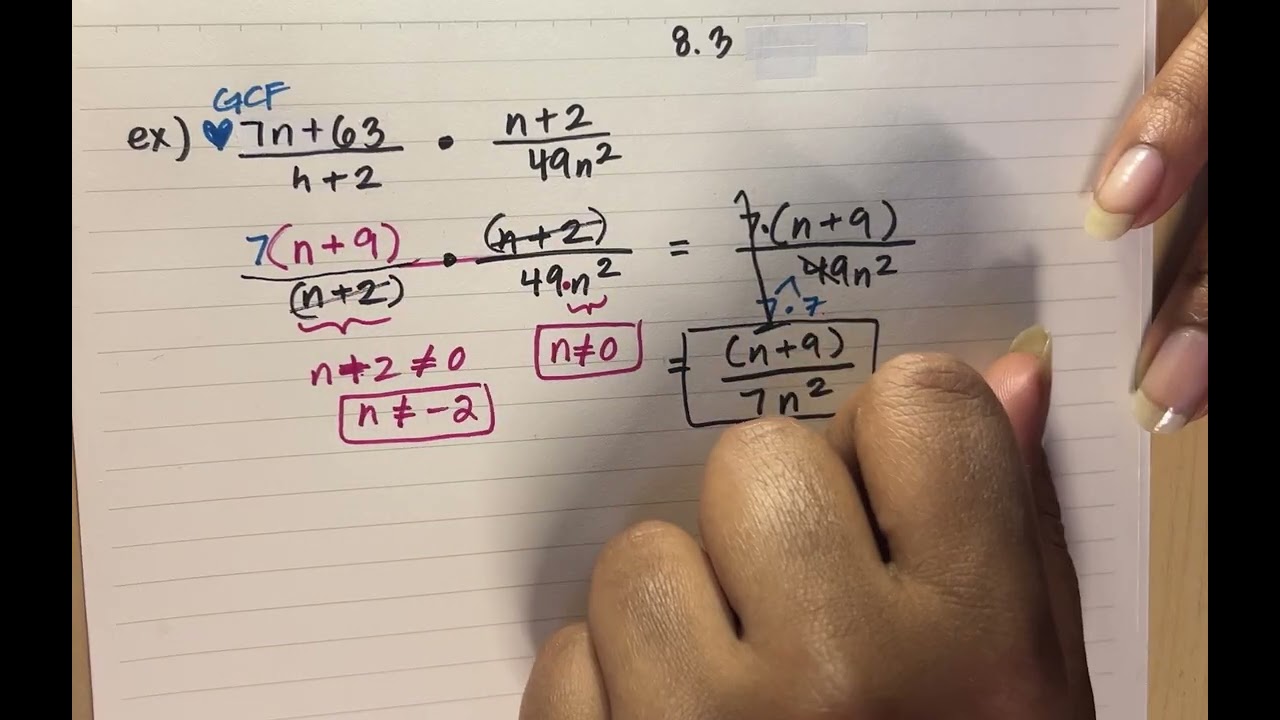 8.3
GCF
ex) ♥ 7n+63 / n+2 • n+2 / 49n²
7(n+9) / (n+2) • (n+2) / 49•n² = 7•(n+9) / 49n²
7•7
n+2≠0
n≠-2
n≠0
= (n+9) / 7n²